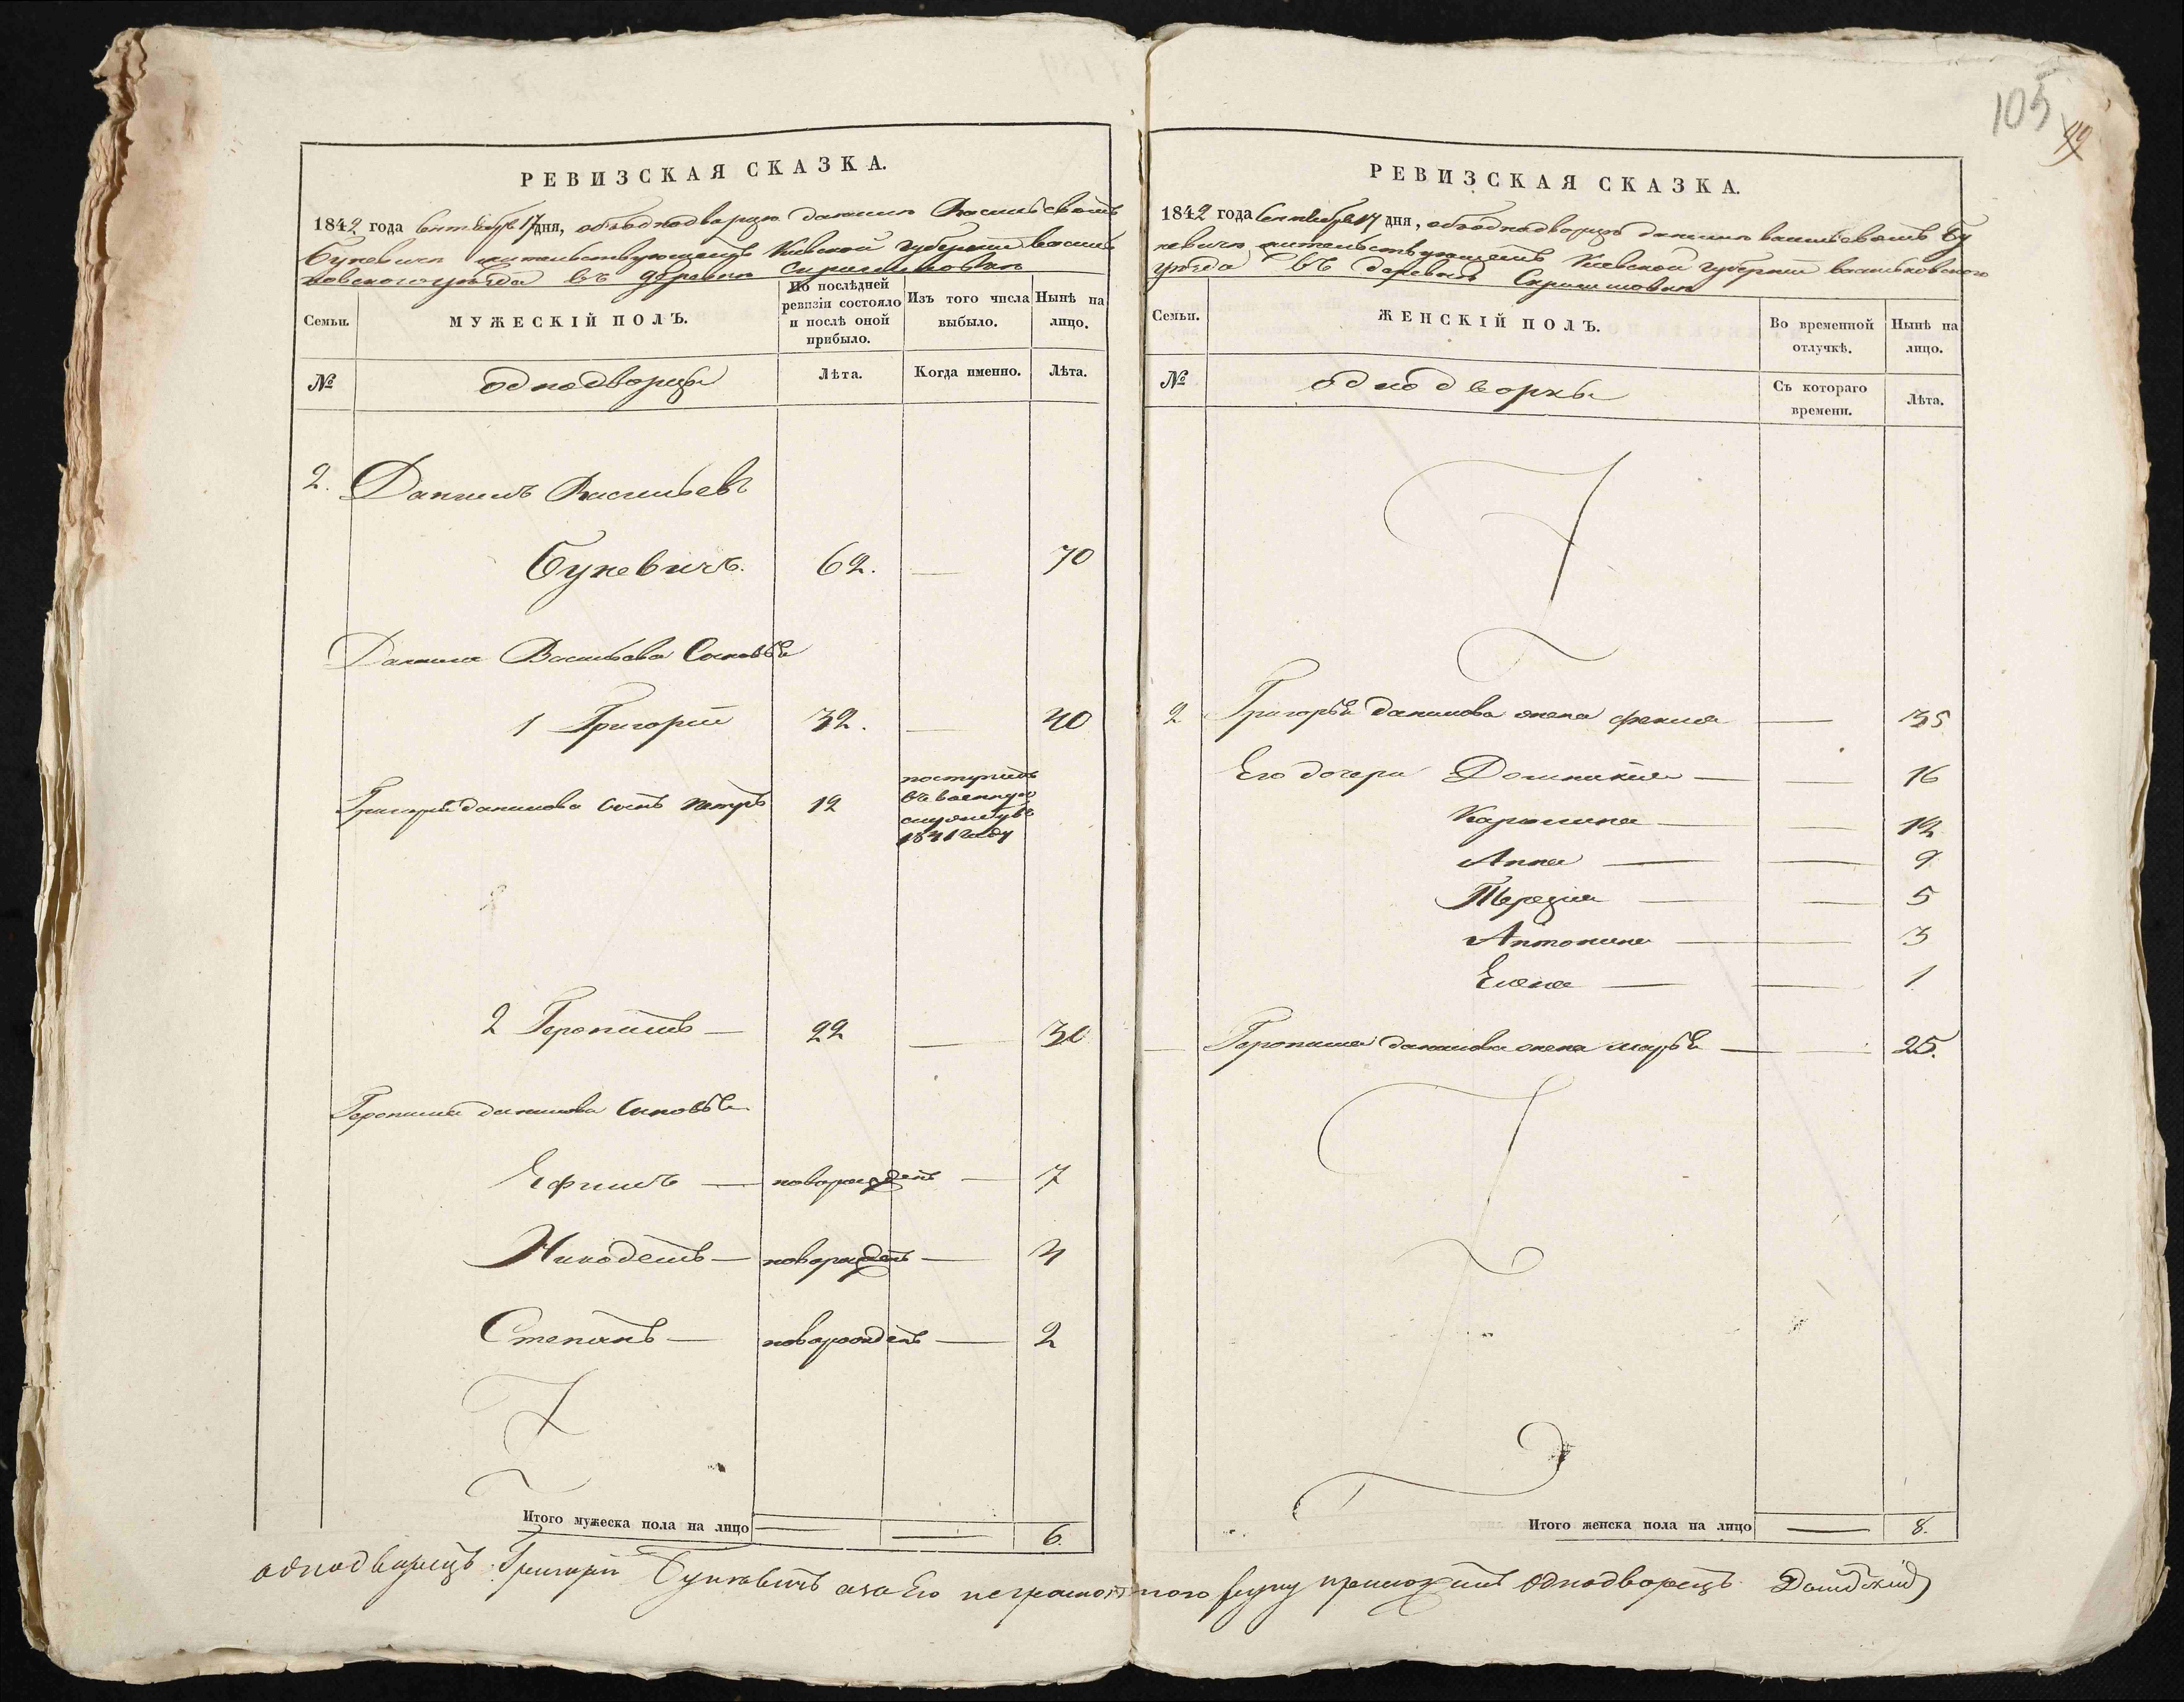 105
49
РЕВИЗСКАЯ СКАЗКА.
1842 года Сентября 17 дня, объ однодворцѣ Данилѣ Васильевомъ
Букевичѣ жительствующемъ Кіевской Губерніи Василь
ковского уѣзда въ деревнѣ
Семьи.
МУЖЕСКІЙ ПОЛЪ.
По послѣдней ревизіи состояло и послѣ оной прибыло.
Изъ того числа выбыло.
Нынѣ на лицо.
№
однодворцы
Лѣта.
Когда именно.
Лѣта.
2. Данилъ Васильевъ
Букевичъ. 62. — 70
Данила Васильева Сыновья
1 Григорій 32. — 40
Григорія Данилова сынъ Петръ 12 поступилъ
въ военную
службу въ
1841 году
2 Геронимъ — 22 — 30
Геронима Данилова Сыновья
Ефимъ — новорожденъ — 7
Никодемъ — новорожденъ — 4
Степанъ — новорожденъ — 2
Итого мужеска пола на лицо — — 6.
РЕВИЗСКАЯ СКАЗКА.
1842 года Сентября 17 дня, объ однодворцѣ Данилѣ Васильевомъ Бу
кевичѣ жительствующемъ Кіевской Губерніи Васильковского
уѣзда въ деревнѣ
Семьи.
ЖЕНСКІЙ ПОЛЪ.
Во временной отлучкѣ.
Нынѣ на лицо.
№
однодворки
Съ котораго времени.
Лѣта.
2 Григорья Данилова жена — 35
Его дочери Доминикия — — 16
Каролина — — 12
Анна — — 9
Терезия — — 5
Антонина — — 3
Елена — — 1
Геронима Данилова жена Марья — — 25.
Итого женска пола на лицо — 8.
однодворецъ Григорій Букевичъ а за Его неграмотного руку приложилъ Однодворецъ